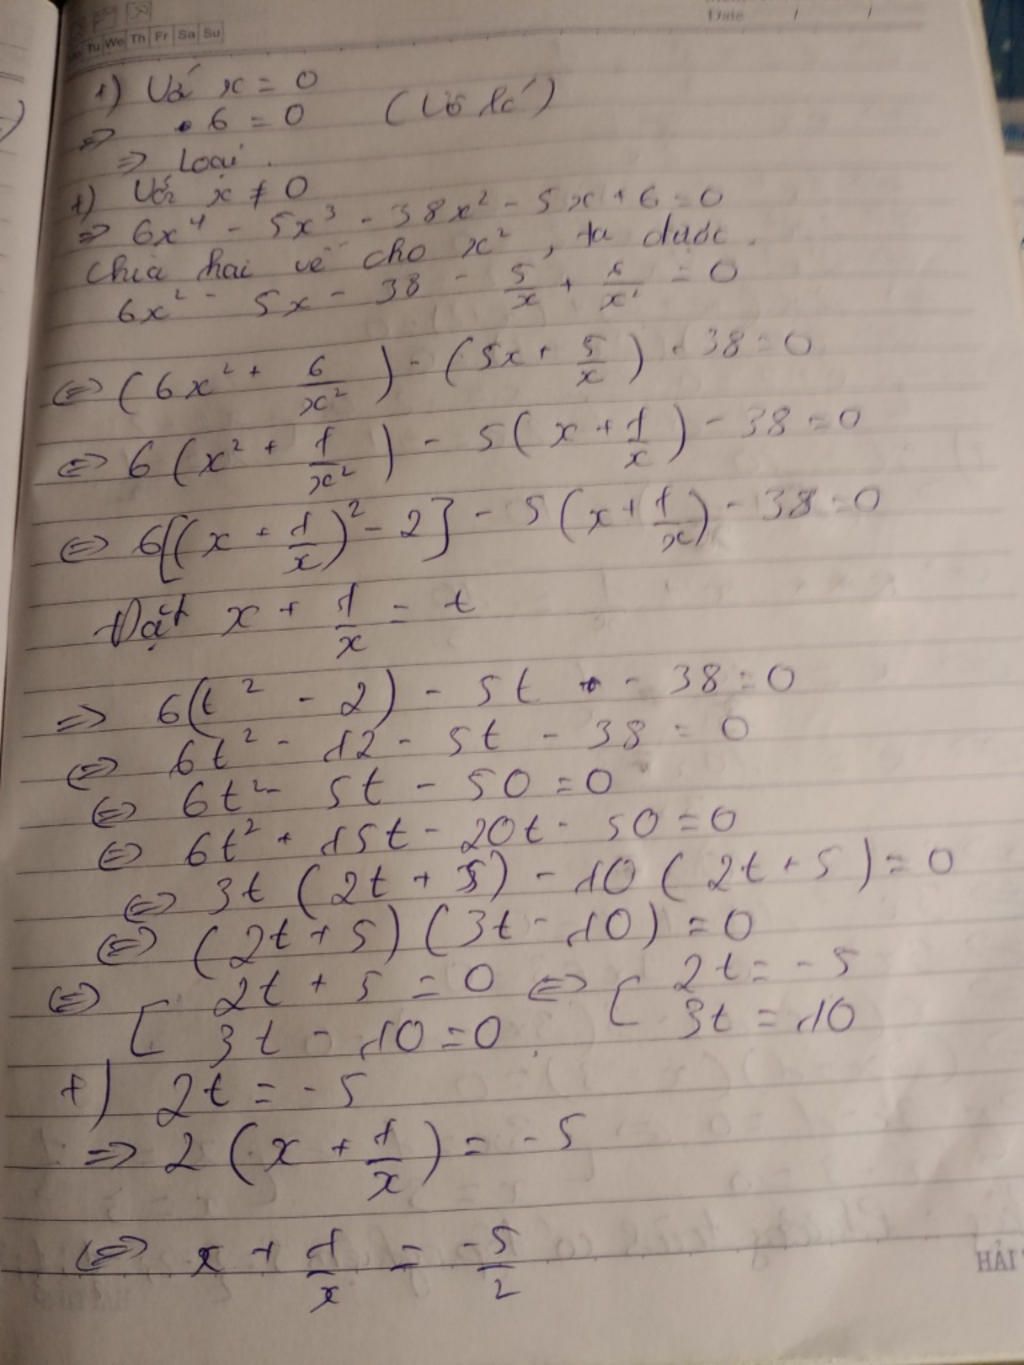 Tu We Th Fr Sa Su
Date / /
+) Với x = 0
=> 6 = 0 (Vô lí)
=> Loại.
+) Với x ≠ 0
=> 6x⁴ - 5x³ - 38x² - 5x + 6 = 0
Chia hai vế cho x², ta được.
6x² - 5x - 38 - 5/x + 6/x² = 0
<=> (6x² + 6/x²) - (5x + 5/x) - 38 = 0
<=> 6(x² + 1/x²) - 5(x + 1/x) - 38 = 0
<=> 6[(x + 1/x)² - 2] - 5(x + 1/x) - 38 = 0
Đặt x + 1/x = t
=> 6(t² - 2) - 5t - 38 = 0
<=> 6t² - 12 - 5t - 38 = 0
<=> 6t² - 5t - 50 = 0
<=> 6t² + 15t - 20t - 50 = 0
<=> 3t(2t + 5) - 10(2t + 5) = 0
<=> (2t + 5)(3t - 10) = 0
<=> [ 2t + 5 = 0 <=> [ 2t = -5
3t - 10 = 0 3t = 10
+) 2t = -5
=> 2(x + 1/x) = -5
<=> x + 1/x = -5/2
HẢI